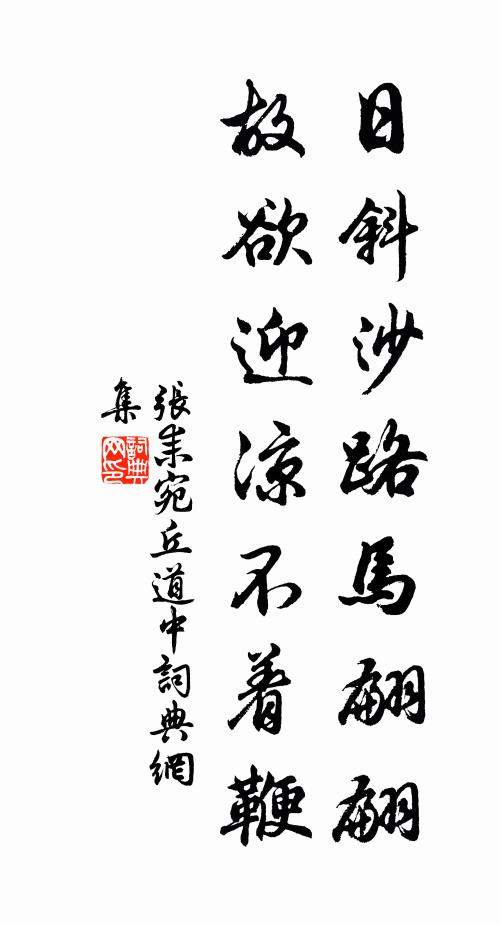 日斜沙路馬翩翩
故欲迎涼不着鞭
張耒宛丘道中詞典網
集
詞典
网印